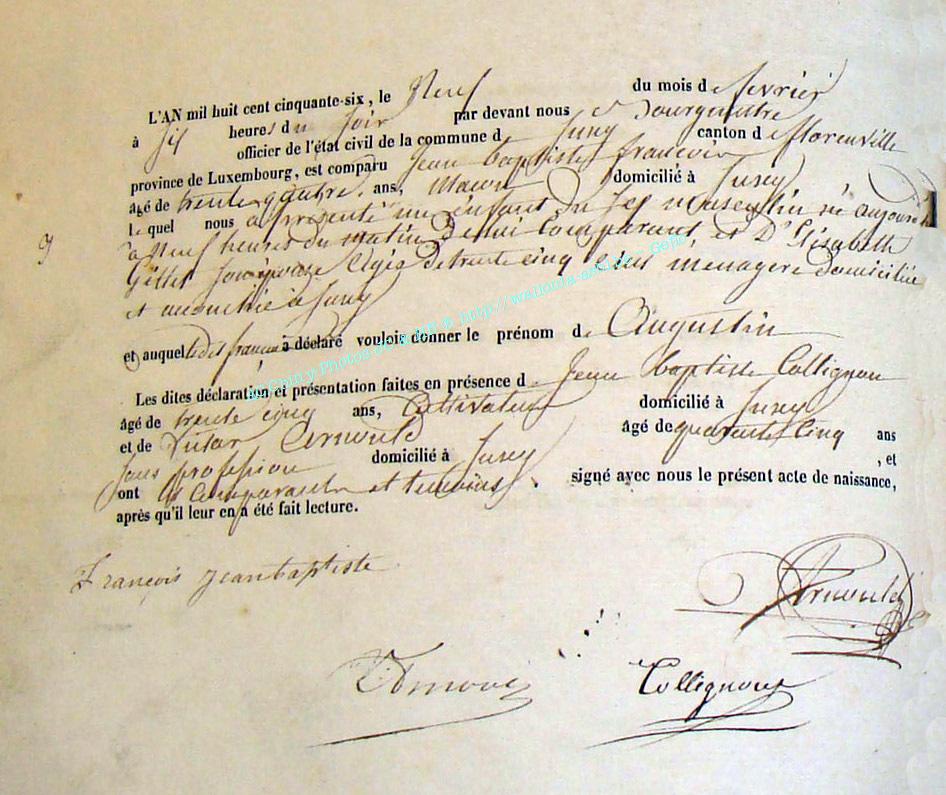 L'AN mil huit cent cinquante-six, le Neuf du mois de février
à six heures du soir par devant nous Bourgmestre
officier de l'état civil de la commune de Jusey canton de Florenville
province de Luxembourg, est comparu Jean baptiste françois
âgé de trente quatre ans, Maçon domicilié à Jusey
lequel nous a présenté un enfant du sexe masculin né aujourd'hui
9
à Neuf heures du matin De lui Comparant et De Elisabeth
Gillet son épouse Agée de trente cinq ans ménagère domiciliée
et au dit à Jusey
et auquel le dit françois a déclaré vouloir donner le prénom de Augustin
Les dites déclaration et présentation faites en présence de Jean baptiste Collignon
âgé de trente cinq ans, Cultivateur domicilié à Jusey
et de Arnould âgé de quarante Cinq ans
sans profession domicilié à Jusey , et
ont les Comparants et témoins signé avec nous le présent acte de naissance,
après qu'il leur en a été fait lecture.
françois jean baptiste
Arnould
Collignon